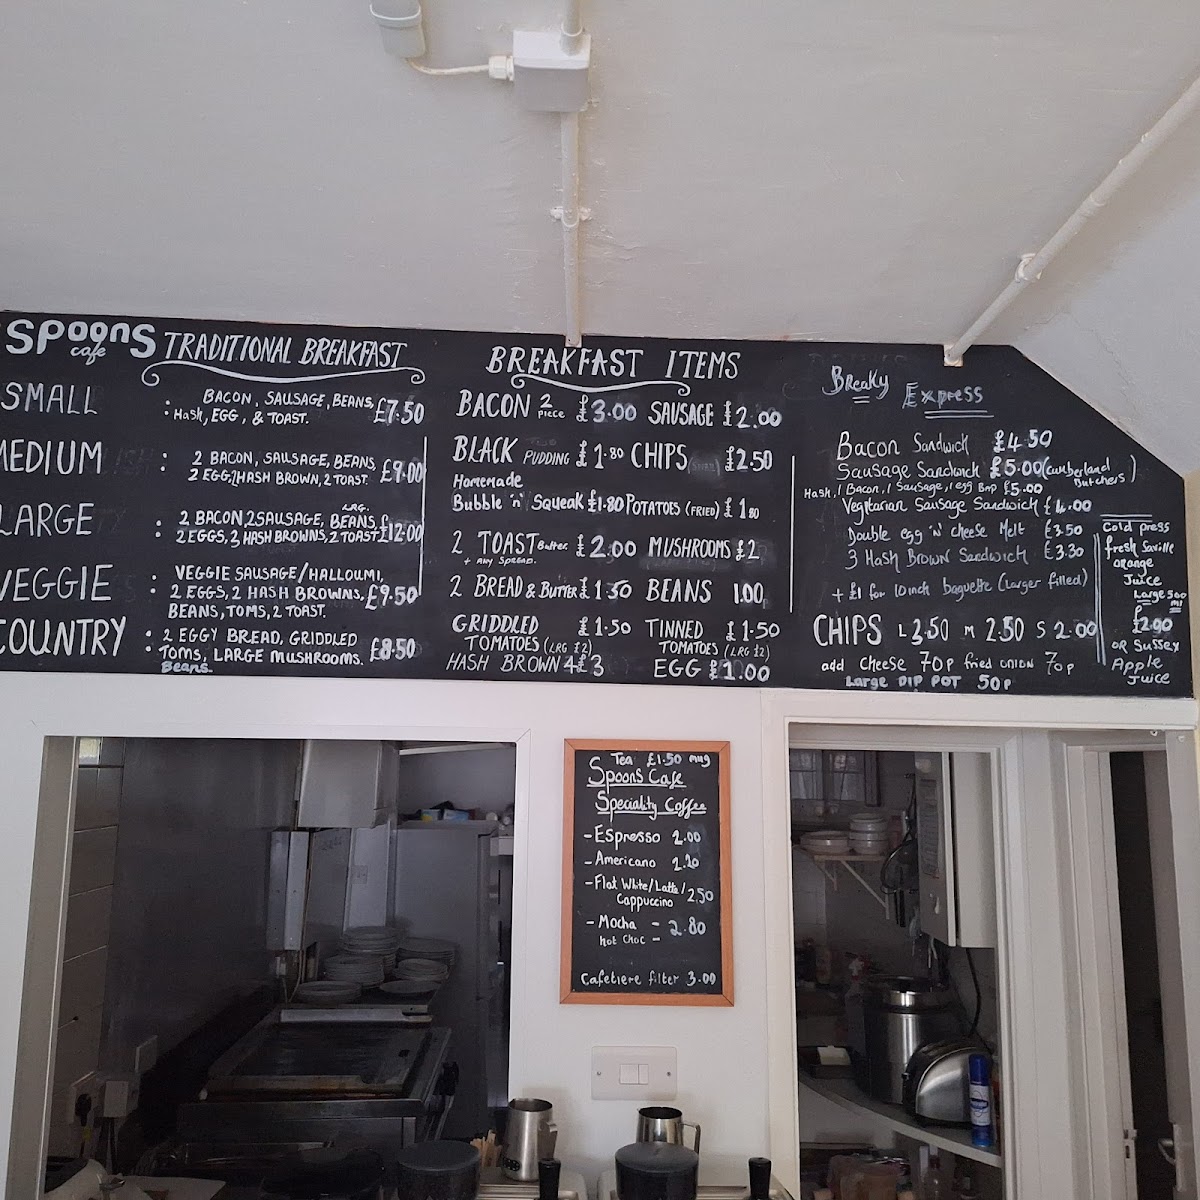 SPOONS
cafe
TRADITIONAL BREAKFAST
SMALL : BACON, SAUSAGE, BEANS,
HASH, EGG, & TOAST. £7.50
MEDIUM : 2 BACON, SAUSAGE, BEANS,
2 EGG, 2 HASH BROWN, 2 TOAST. £9.00
LARGE : 2 BACON, 2 SAUSAGE, LRG. BEANS,
2 EGGS, 3 HASH BROWNS, 2 TOAST £12.00
VEGGIE : VEGGIE SAUSAGE/HALLOUMI,
2 EGGS, 2 HASH BROWNS,
BEANS, TOMS, 2 TOAST. £9.50
COUNTRY : 2 EGGY BREAD, GRIDDLED
TOMS, LARGE MUSHROOMS. £8.50
Beans
BREAKFAST ITEMS
BACON 2 piece £3.00 SAUSAGE £2.00
BLACK PUDDING £1.80 CHIPS £2.50
Homemade
Bubble 'n' Squeak £1.80 POTATOES (FRIED) £1.80
2 TOAST Butter £2.00 MUSHROOMS £2
+ ANY SPREAD.
2 BREAD & BUTTER £1.30 BEANS 1.00
GRIDDLED £1.50 TINNED £1.50
TOMATOES (LRG £2) TOMATOES (LRG £2)
HASH BROWN 4 £3 EGG £1.00
Breaky
Express
Bacon Sandwich £4.50
Sausage Sandwich £5.00 (Cumberland Butchers)
Hash, 1 Bacon, 1 Sausage, 1 egg Bap £5.00
Vegetarian Sausage Sandwich £4.00
Double egg 'n' cheese Melt £3.50
3 Hash Brown Sandwich £3.30
+ £1 for 10 inch baguette (larger filled)
CHIPS L 3.50 M 2.50 S 2.00
add cheese 70p fried onion 70p
Large DIP POT 50p
Cold press
fresh Saville
orange
Juice
Large 500
ml
£2.90
OR SUSSEX
Apple
Juice
Tea £1.50 mug
Spoons Cafe
Speciality Coffee
- Espresso 2.00
- Americano 2.20
- Flat White/Latte/
Cappuccino 2.50
- Mocha - 2.80
hot choc -
Cafetiere filter 3.00